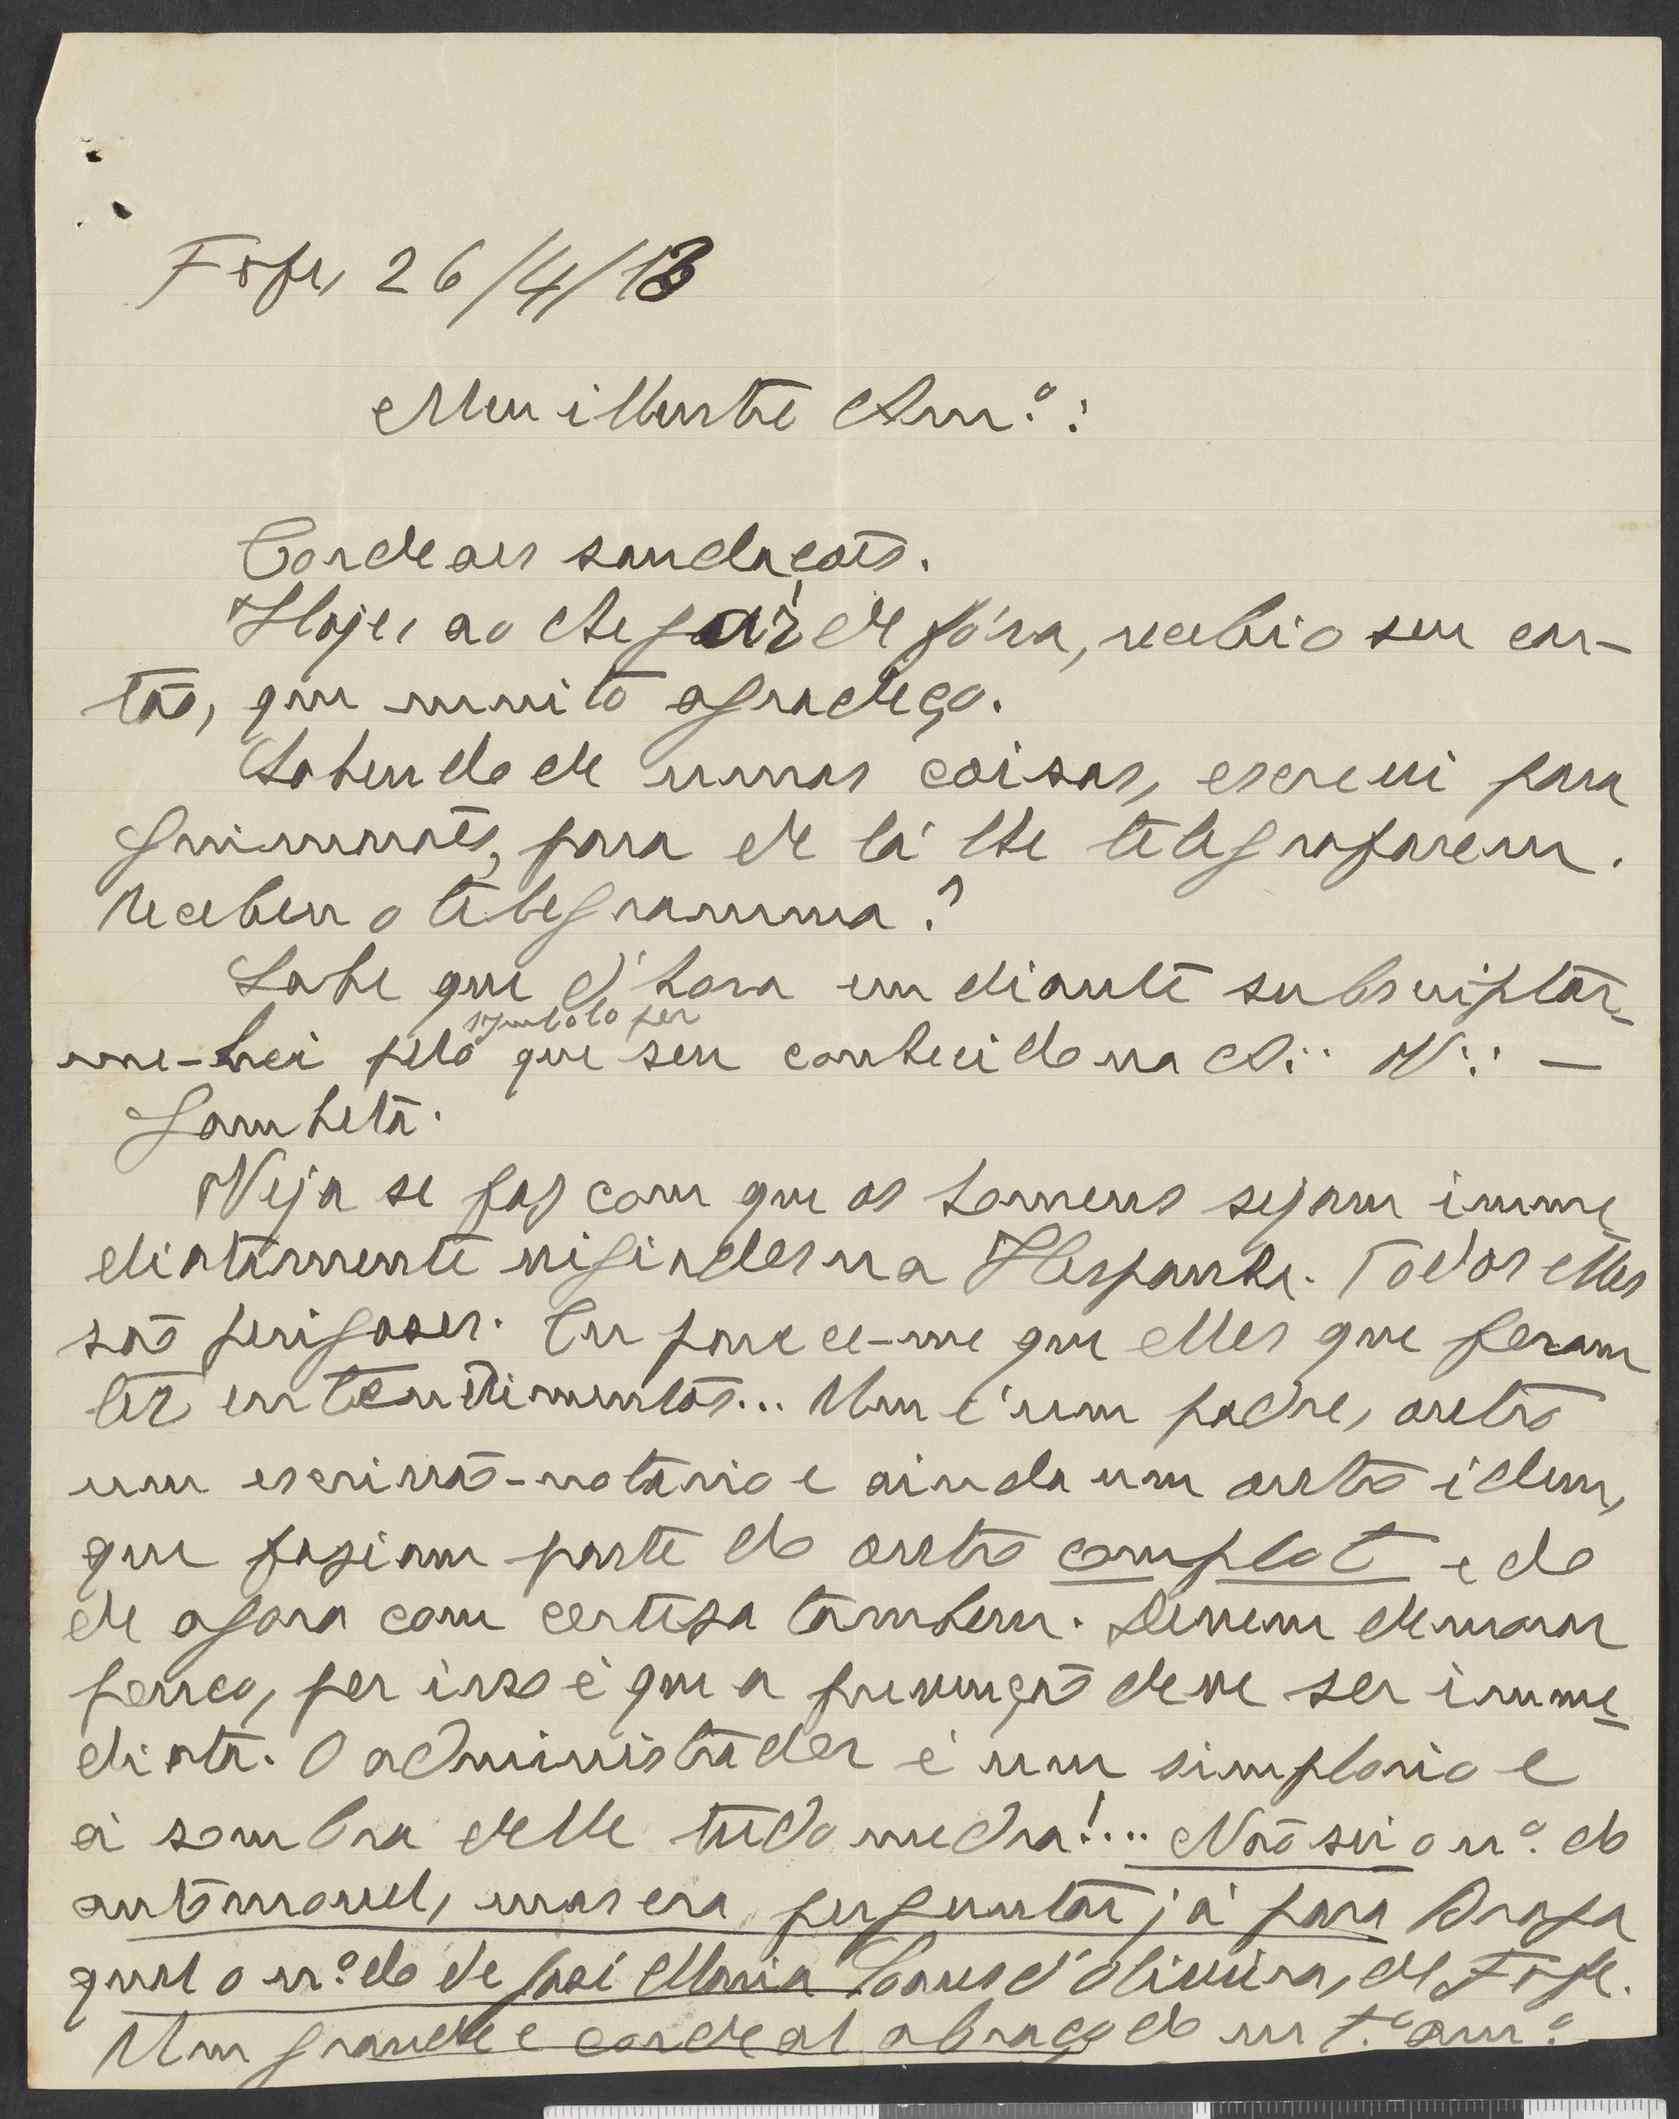 Fafe, 26/4/13
Meu illustre Am.º:
Cordeaes saudações.
Hoje, ao chegar de fóra, recebi o seu car-
tão, que muito agradeço.
Sabendo de umas coisas, escrevi para
Guimarães, para de lá lhe telegrafarem.
Recebeu o telegramma?
Sabe que d'hora em diante subscriptar-
symbolo por
me-hei pelo que sou conhecido na A∴ V∴ —
Gambeta.
Veja se faz com que os homens sejam imme-
diatamente vigiados na Hespanha. Todos elles
são perigosos. Eu parece-me que elles que foram
ter entendimentos... Um é um padre, outro
um escrivão-notario e ainda um outro idem,
que faziam parte do outro complot e do
de agora com certeza tambem. Devem demorar
pouco, por isso é que a prevenção deve ser imme-
diata. O administrador é um simplorio e
á sombra delle tudo medra!... Não sei o n.º do
automovel, mas era perguntar já para Braga
qual o n.º do de José Maria d'Oliveira, de Fafe.
Um grande e cordeal abraço do m.tº am.º